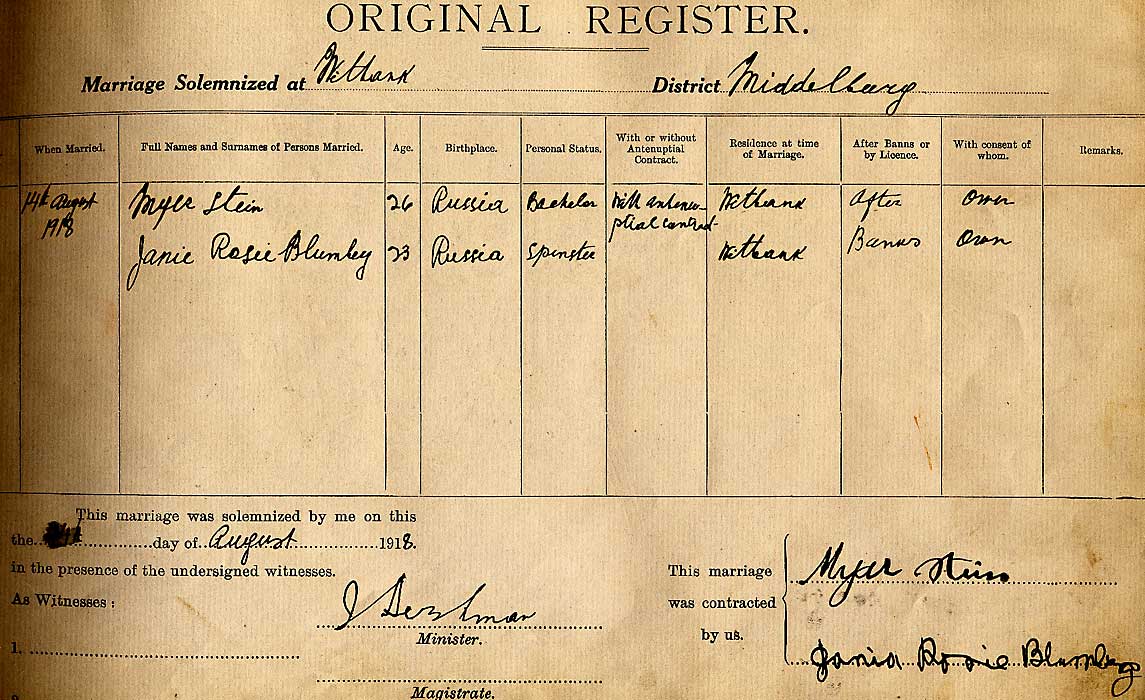 ORIGINAL REGISTER.
Marriage Solemnized at Witbank District Middelburg
When Married. Full Names and Surnames of Persons Married. Age. Birthplace. Personal Status. With or without Antenuptial Contract. Residence at time of Marriage. After Banns or by Licence. With consent of whom. Remarks.
14th August Myer Stein 26 Russia Bachelor With antenup- Witbank After Own
1918 ptial contract
Janie Rosie Blumberg 23 Russia Spinster Witbank Banns Own
This marriage was solemnized by me on this
the day of August 1918.
in the presence of the undersigned witnesses.
As Witnesses :
Minister.
1.
Magistrate.
This marriage Myer Stein
was contracted
by us.
Janie Rosie Blumberg